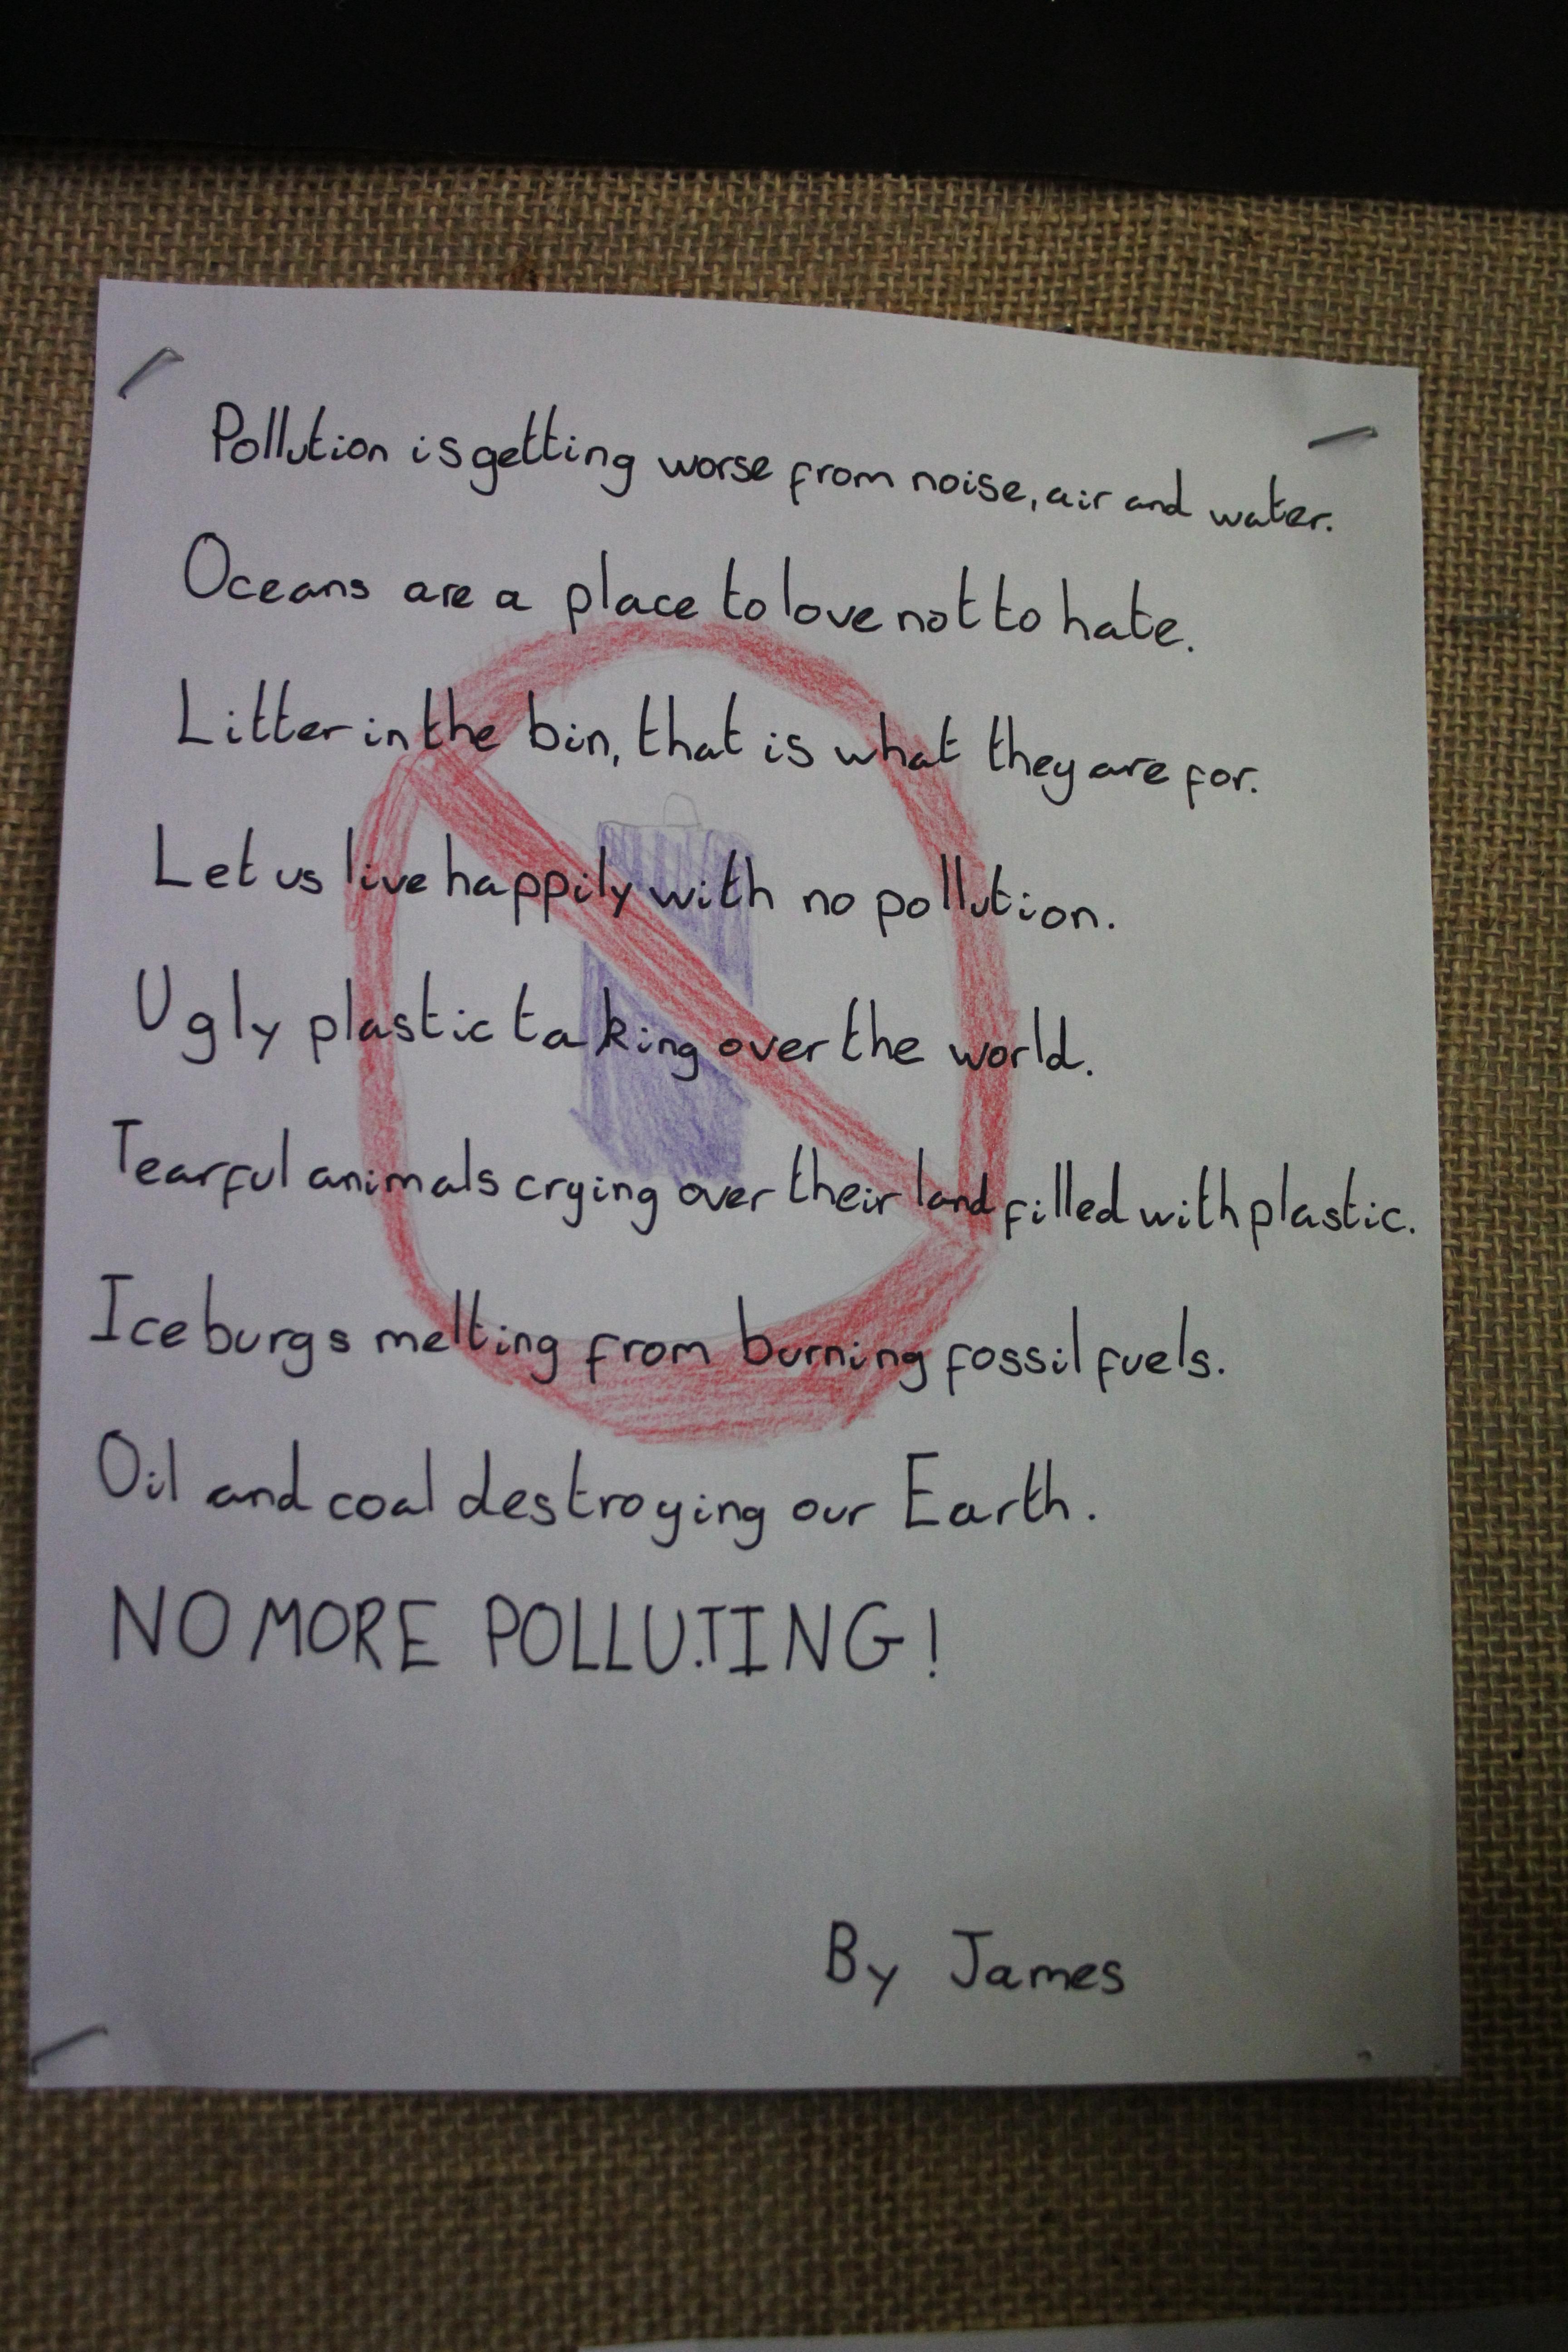 Pollution is getting worse from noise, air and water.
Oceans are a place to love not to hate.
Litter in the bin, that is what they are for.
Let us live happily with no pollution.
Ugly plastic taking over the world.
Tearful animals crying over their land filled with plastic.
Iceburgs melting from burning fossil fuels.
Oil and coal destroying our Earth.
NO MORE POLLUTING!
By James